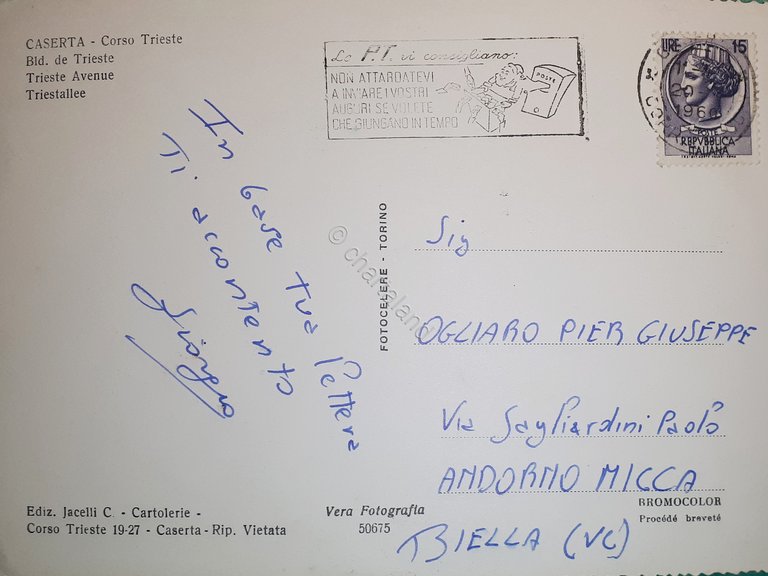 CASERTA - Corso Trieste
Bld. de Trieste
Trieste Avenue
Triestallee
Le P.T. vi consigliano:
NON ATTARDATEVI
A INVIARE I VOSTRI
AUGURI SE VOLETE
CHE GIUNGANO IN TEMPO
POSTE
LIRE 15
20
1960
POSTE
REPVBBLICA
ITALIANA
In base tua lettera
Ti accontento
Giorgio
FOTOCELERE - TORINO
© chartaland
Sig
OGLIARO PIER GIUSEPPE
Via Sagliardini Paolo
ANDORNO MICCA
BIELLA (VC)
Ediz. Jacelli C. - Cartolerie -
Corso Trieste 19-27 - Caserta - Rip. Vietata
Vera Fotografia
50675
BROMOCOLOR
Procédé breveté